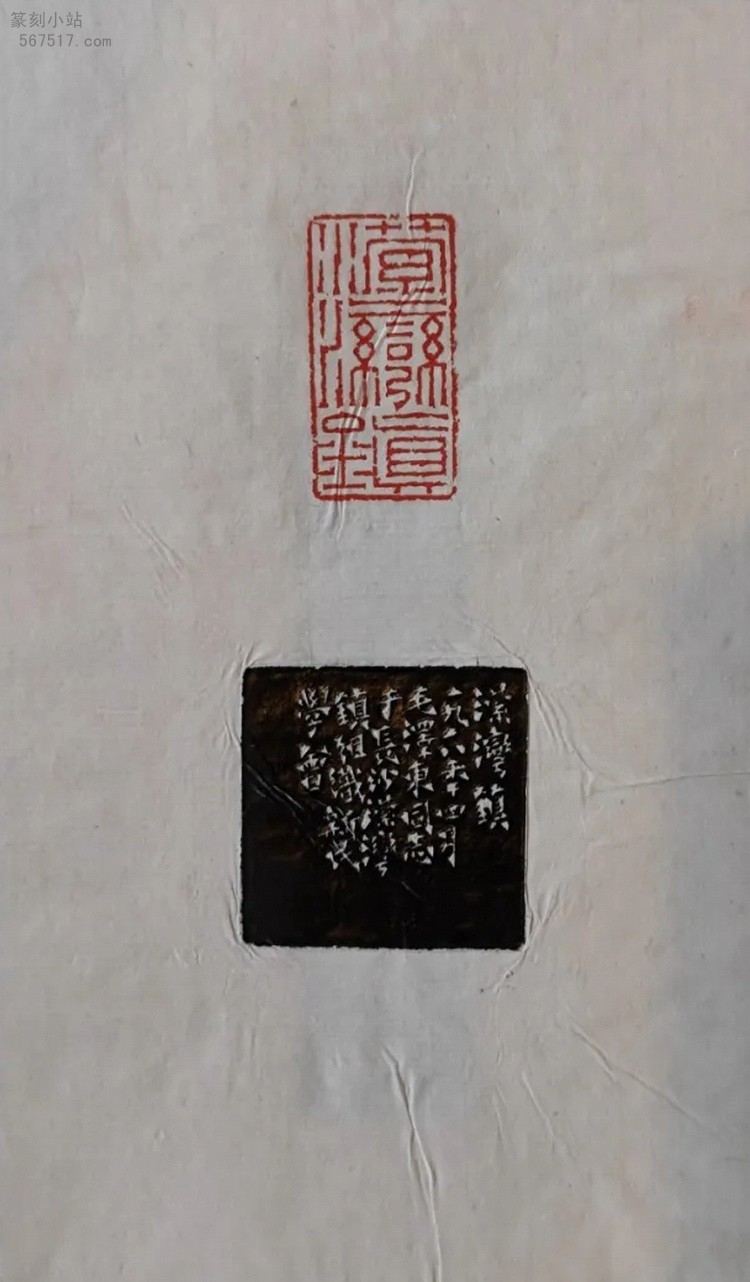 篆刻小站
567517.com
濚灣鎮
濚灣鎮
一九一八年四月
毛澤東同志
于長沙濚灣
鎮組織新民
學會